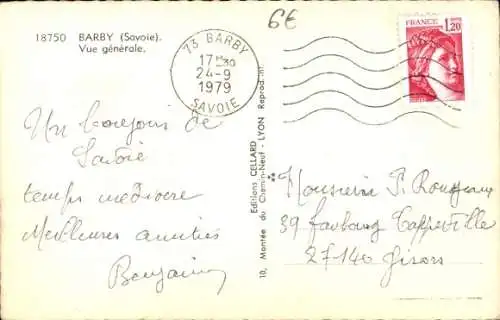 18750 BARBY (Savoie).
Vue générale.
6€
73 BARBY
17H30
24-9
1979
SAVOIE
FRANCE
1,20
Un bonjour de
Savoie
temps médiocre
Meilleures amitiés
Benjamin
Editions CELLARD
10, Montée du Chemin-Neuf - LYON Reprod. int.
Monsieur P.
39 faubourg Cappeville
27140 Gisors